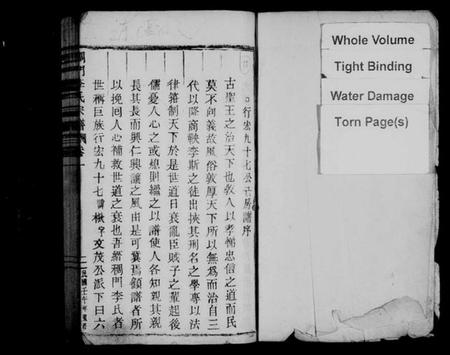 行宏九十七公㐧房譜序
古聖王之治天下也教人以孝悌忠信之道而民
莫不向義故風俗敦厚天下所以無為而治自三
代以降商鞅李斯之徒出挾其刑名之學專以法
律箝制天下於是世道日衰亂臣賊子之輩起後
儒憂人心之或熄則繼之以譜使人各知親其親
長其長而興仁興讓之風由是可冀焉顧譜者所
以挽回人心補救世道之衰也吾縉稠門李氏者
世稱巨族行宏九十七諱楸字文茂公派下曰六
Whole Volume
Tight Binding
Water Damage
Torn Page(s)